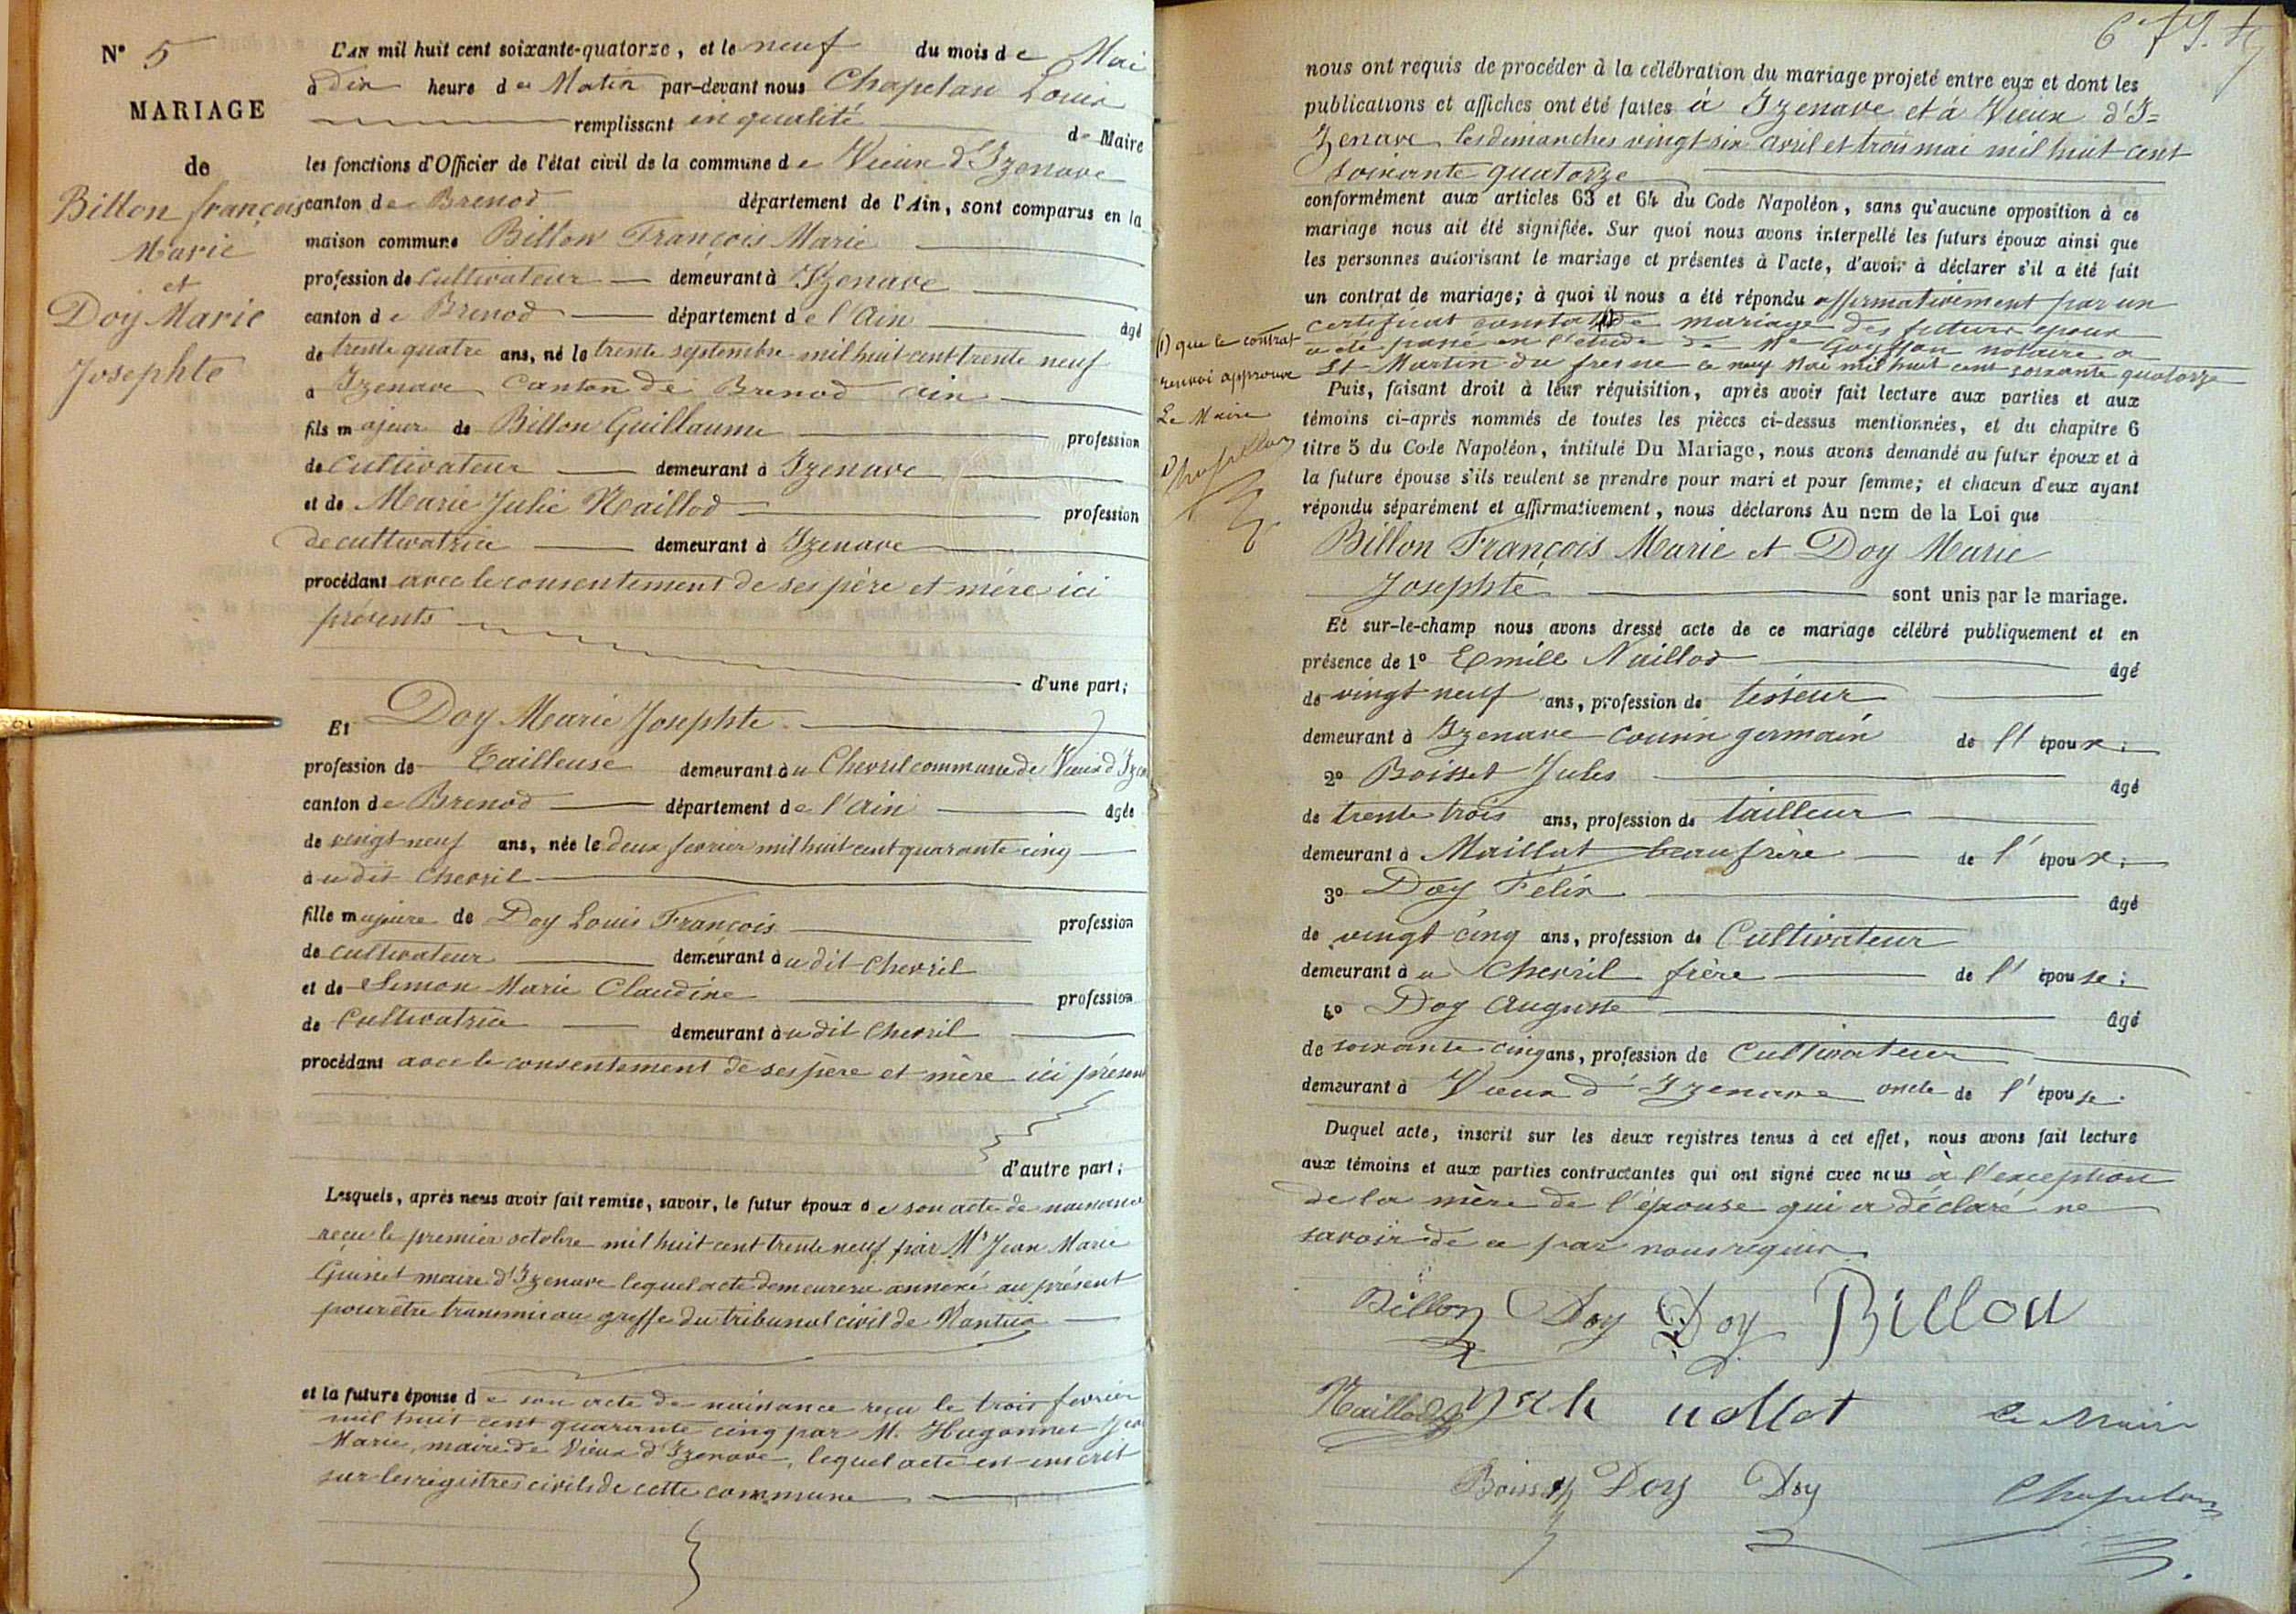 N° 5
MARIAGE
de
Billon françois
Marie
et
Doy Marie
Josephte
L'AN mil huit cent soixante-quatorze, et le neuf du mois de Mai
à dix heure du Matin par-devant nous Chapelan Louis
remplissant en qualité de Maire
les fonctions d'Officier de l'état civil de la commune de Vieux d'Izenave
canton de Brenod département de l'Ain, sont comparus en la
maison commune Billon François Marie
profession de cultivateur demeurant à Izenave
canton de Brenod département de l'Ain âgé
de trente quatre ans, né le trente septembre mil huit cent trente neuf
a Izenave Canton de Brenod Ain
fils majeur de Billon Guillaume profession
de cultivateur demeurant à Izenave
et de Marie Julie Naillod profession
de cultivatrice demeurant à Izenave
procédant avec le consentement de ses père et mère ici
présents
d'une part;
Et Doy Marie Josephte
profession de Tailleuse demeurant au Chevril commune de Vieux d'Izen
canton de Brenod département de l'Ain âgée
de vingt neuf ans, née le deux fevrier mil huit cent quarante cinq
au dit Chevril
fille majeure de Doy Louis François profession
de cultivateur demeurant au dit Chevril
et de Simon Marie Claudine profession
de Cultivatrice demeurant au dit Chevril
procédant avec le consentement de ses père et mère ici présen
d'autre part;
Lesquels, après nous avoir fait remise, savoir, le futur époux de son acte de naissance
reçu le premier octobre mil huit cent trente neuf par Mr Jean Marie
Guinet maire d'Izenave lequel acte demeurera annexé au présent
pour être transmis au greffe du tribunal civil de Nantua
et la future épouse de son acte de naissance reçu le trois fevrier
mil huit cent quarante cinq par M. Hugonnet
Marie, maire de Vieux d'Izenave, lequel acte est inscrit
sur les registres civils de cette commune
nous ont requis de procéder à la célébration du mariage projeté entre eux et dont les
publications et affiches ont été faites à Izenave et à Vieux d'I=
zenave les dimanches vingt six avril et trois mai mil huit cent
soixante quatorze
conformément aux articles 63 et 64 du Code Napoléon, sans qu'aucune opposition à ce
mariage nous ait été signifiée. Sur quoi nous avons interpellé les futurs époux ainsi que
les personnes autorisant le mariage et présentes à l'acte, d'avoir à déclarer s'il a été fait
un contrat de mariage; à quoi il nous a été répondu affirmativement par un
certificat constat (1) de mariage des futurs epoux
a été passé en l'étude de Me notaire a
St Martin du fresne ce neuf Mai mil huit cent soixante quatorze
(1) que le contrat
renvoi approuvé
Le Maire
Chapelan
Puis, faisant droit à leur réquisition, après avoir fait lecture aux parties et aux
témoins ci-après nommés de toutes les pièces ci-dessus mentionnées, et du chapitre 6
titre 5 du Code Napoléon, intitulé Du Mariage, nous avons demandé au futur époux et à
la future épouse s'ils veulent se prendre pour mari et pour femme; et chacun d'eux ayant
répondu séparément et affirmativement, nous déclarons Au nom de la Loi que
Billon François Marie et Doy Marie
Josephte sont unis par le mariage.
Et sur-le-champ nous avons dressé acte de ce mariage célébré publiquement et en
présence de 1° Emile Naillod âgé
de vingt neuf ans, profession de tisseur
demeurant à Izenave cousin germain de l'époux;
2° Boisset Jules âgé
de trente trois ans, profession de tailleur
demeurant à Maillat beau frère de l'époux;
3° Doy Félix âgé
de vingt cinq ans, profession de Cultivateur
demeurant au Chevril frère de l'épouse;
4° Doy Auguste âgé
de soixante cinq ans, profession de Cultivateur
demeurant à Vieux d'Izenave oncle de l'épouse.
Duquel acte, inscrit sur les deux registres tenus à cet effet, nous avons fait lecture
aux témoins et aux parties contractantes qui ont signé avec nous à l'exception
de la mère de l'épouse qui a déclaré ne
savoir de ce par nous requise
Billon Doy Doy Billon
Naillod
Le Maire
Boisset Doy Doy Chapelan